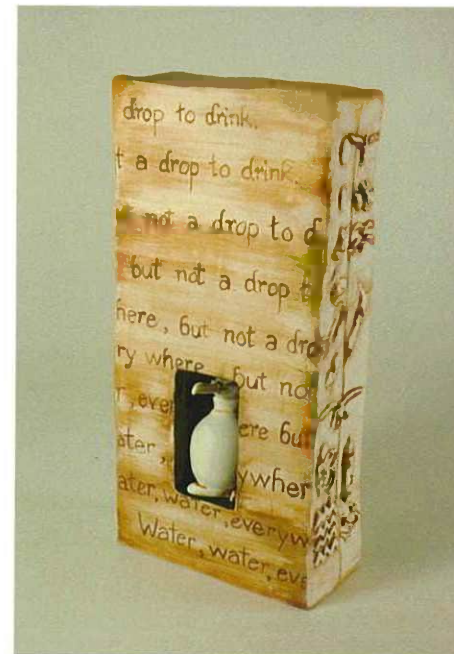 drop to drink.
t a drop to drink.
not a drop to d
but not a drop t
here, but not a dro
ry where, but no
r, ever ere but
ater, ywher
ater, water, everyw
Water, water, eve